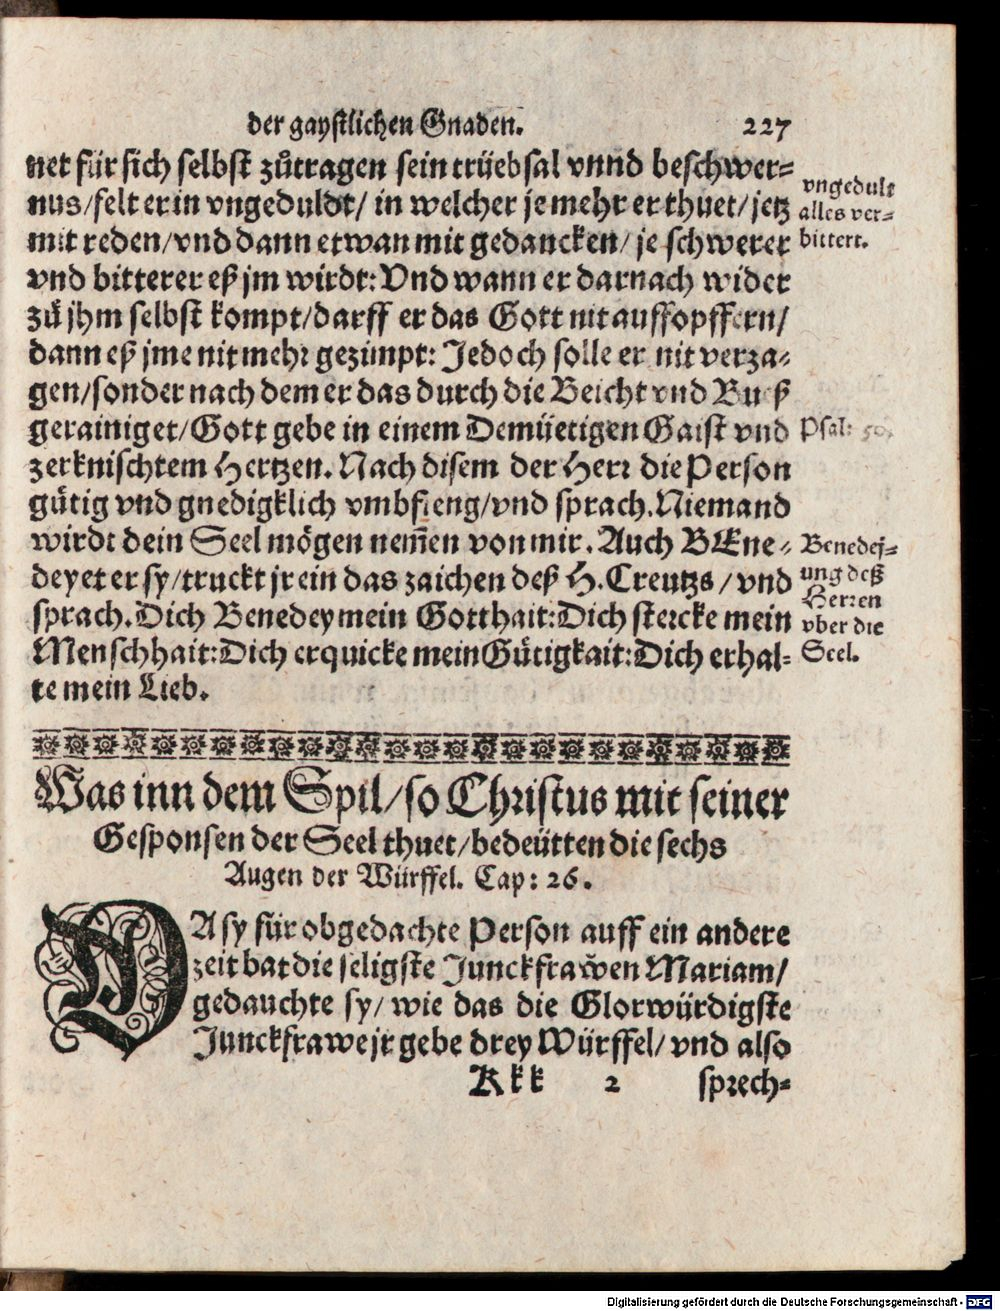 der gaystlichen Gnaden. 227
net für sich selbst zůtragen sein trüebsal vnnd beschwer⸗
nus/felt er in vngeduldt/ in welcher je mehr er thuet/jetz
mit reden/vnd dann etwan mit gedancken/ je schwerer
vnd bitterer eß jm wirdt: Vnd wann er darnach wider
zů jhm selbst kompt/darff er das Gott nit auffopffern/
dann eß jme nit mehr gezimpt: Jedoch solle er nit verza⸗
gen/sonder nach dem er das durch die Beicht vnd Bueß
gerainiget/Gott gebe in einem Demüetigen Gaist vnd
zerknischtem Hertzen. Nach disem der Herr die Person
gütig vnd gnedigklich vmbfieng/vnd sprach. Niemand
wirdt dein Seel mögen nem̃en von mir. Auch BEne⸗
deyet er sy/truckt jr ein das zaichen deß H. Creutzs/vnd
sprach. Dich Benedey mein Gotthait: Dich stercke mein
Menschhait: Dich erquicke mein Gütigkait: Dich erhal⸗
te mein Lieb.
vngedult
alles ver⸗
bittert.
Psal: 50.
Benedej⸗
ung deß
Herren
vber die
Seel.
Was inn dem Spil/so Christus mit seiner
Gesponsen der Seel thuet/bedeütten die sechs
Augen der Würffel. Cap: 26.
DA sy für obgedachte Person auff ein andere
zeit bat die seligste Junckfraẅen Mariam/
gedauchte sy/ wie das die Glorwürdigste
Junckfrawe jr gebe drey Würffel/ vnd also
Kkk 2 sprech⸗
Digitalisierung gefördert durch die Deutsche Forschungsgemeinschaft - DFG